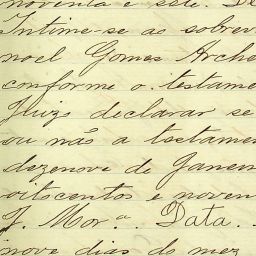 noventa e sete. De
Intime-se ao sobrev
noel Gomes Arche
conforme o testame
Juizo declarar se
ou não a testamen
dezenove de Janei
oitocentos e noven
F. Mor.ª. Data.
nove dias do mez